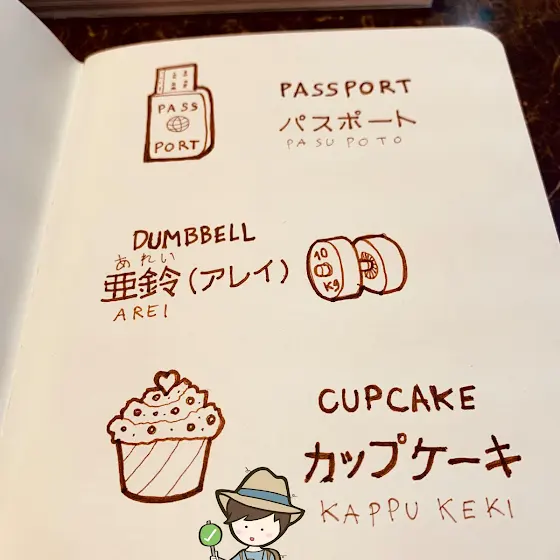 PASS
PORT
PASSPORT
パスポート
PASUPOTO
DUMBBELL
あれい
亜鈴(アレイ)
AREI
10
kg
CUPCAKE
カップケーキ
KAPPU KEKI